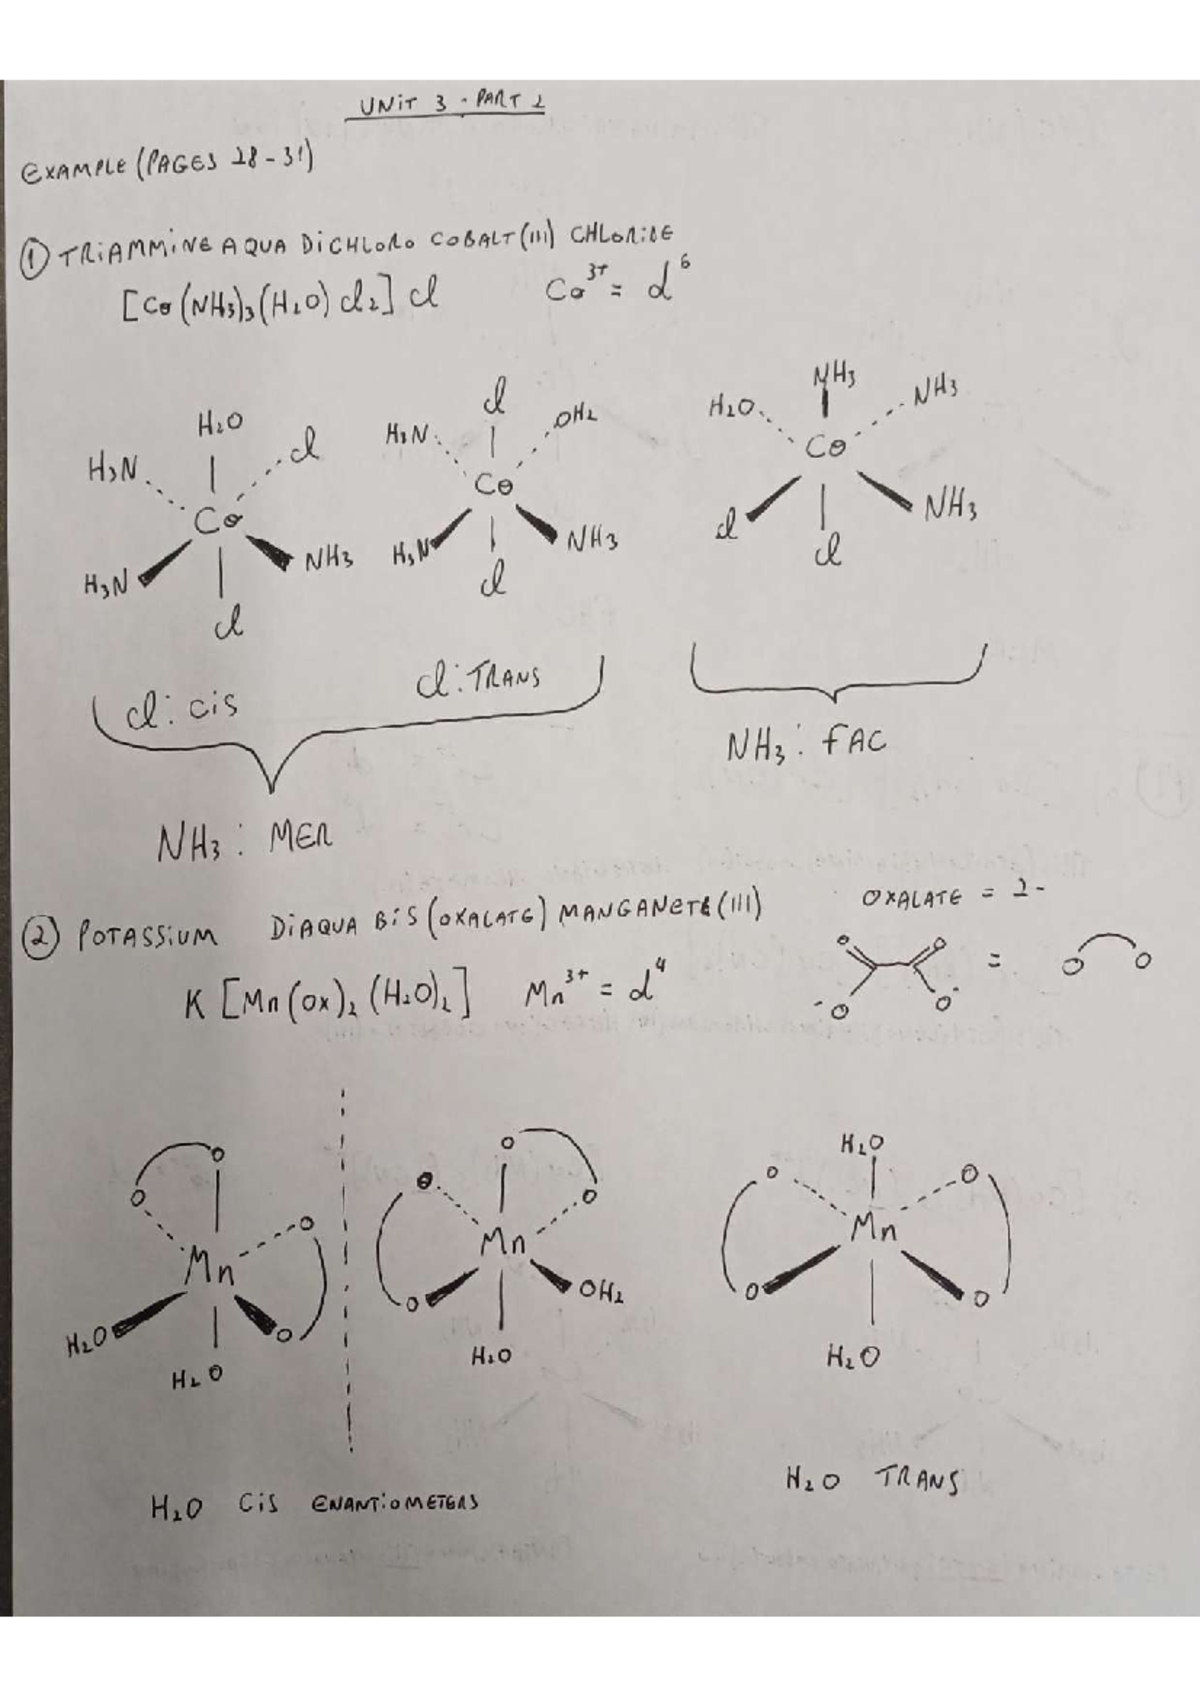 UNIT 3 - PART 2
EXAMPLE (PAGES 28-31)
① TRIAMMINE AQUA DICHLORO COBALT(III) CHLORIDE
[Co(NH3)3(H2O)Cl2]Cl Co³⁺ = d⁶
H2O
H3N Cl
Co
H3N NH3
Cl
Cl
H3N OH2
Co
H3N NH3
Cl
NH3
H2O NH3
Co
Cl NH3
Cl
Cl: CIS
Cl: TRANS
NH3: FAC
NH3: MER
② POTASSIUM DIAQUA BIS(OXALATE) MANGANETE(III)
OXALATE = 2-
K[Mn(ox)2(H2O)2] Mn³⁺ = d⁴
O O
-O O-
= O O
O
O O
Mn
H2O O
H2O
O
O O
Mn
O OH2
H2O
H2O
O O
Mn
O O
H2O
H2O CIS ENANTIOMETERS
H2O TRANS